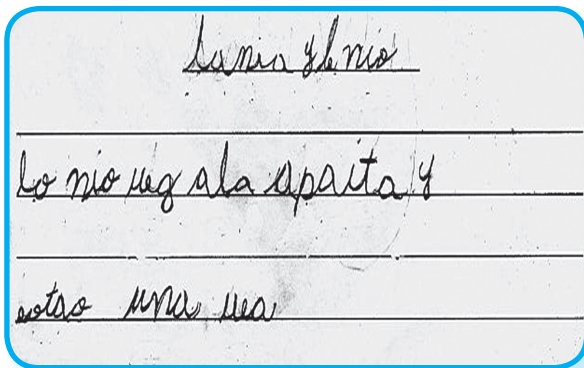 la nia y l nio
lo nio reg ala apaita y
eotro una rea